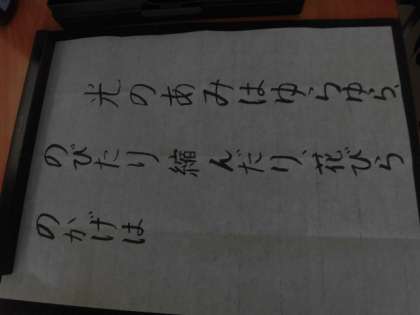 光のあみはゆらゆら、
のびたり縮んだり、花びら
のかげは